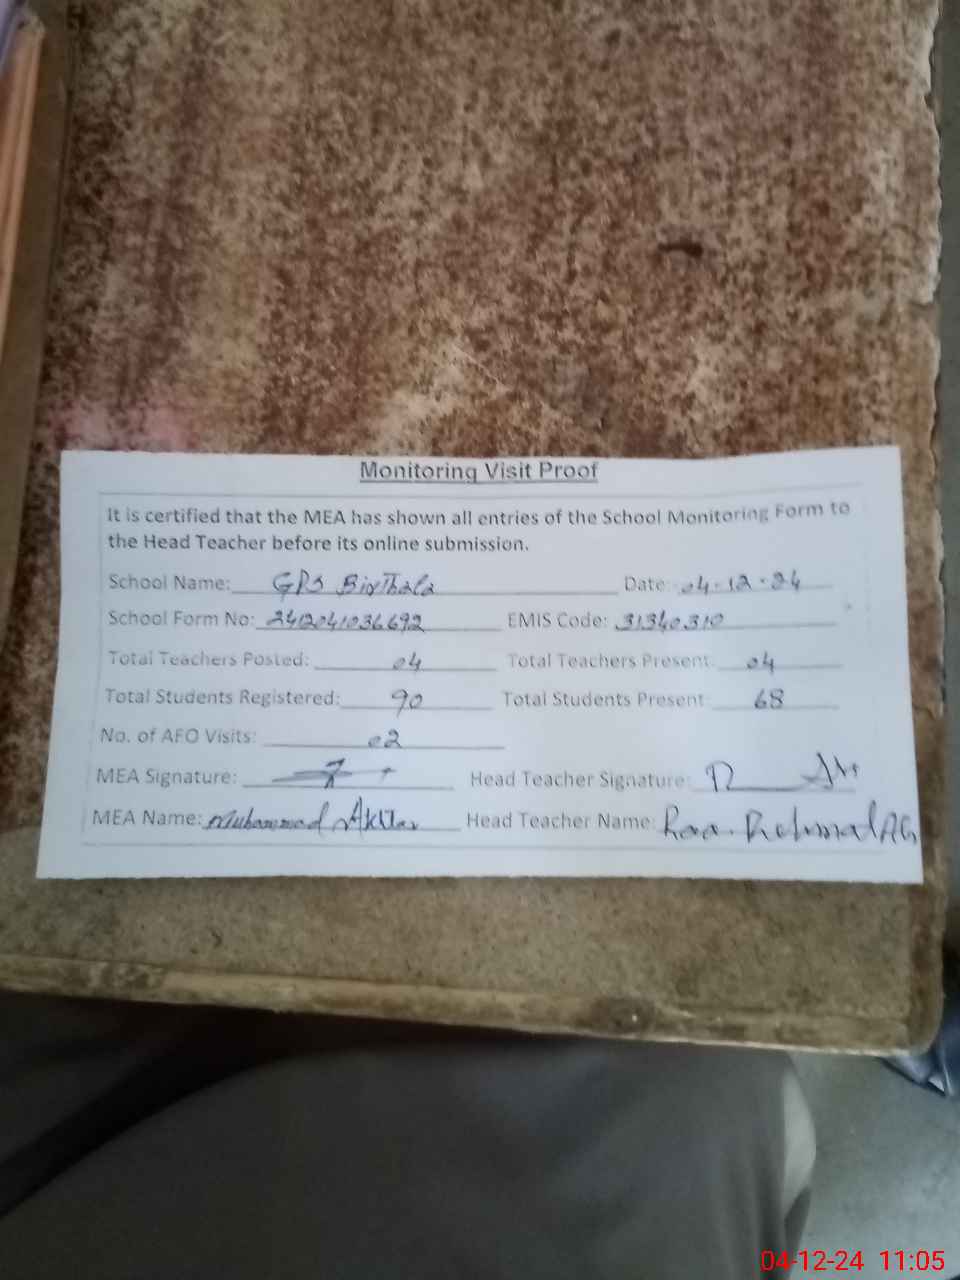 Monitoring Visit Proof
It is certified that the MEA has shown all entries of the School Monitoring Form to
the Head Teacher before its online submission.
School Name: GPS Date: 04-12-24
School Form No: 2412041036692 EMIS Code: 31340310
Total Teachers Posted: 04 Total Teachers Present: 04
Total Students Registered: 90 Total Students Present: 68
No. of AFO Visits: 02
MEA Signature: Head Teacher Signature:
MEA Name: Muhammad Akhtar Head Teacher Name:
04-12-24 11:05